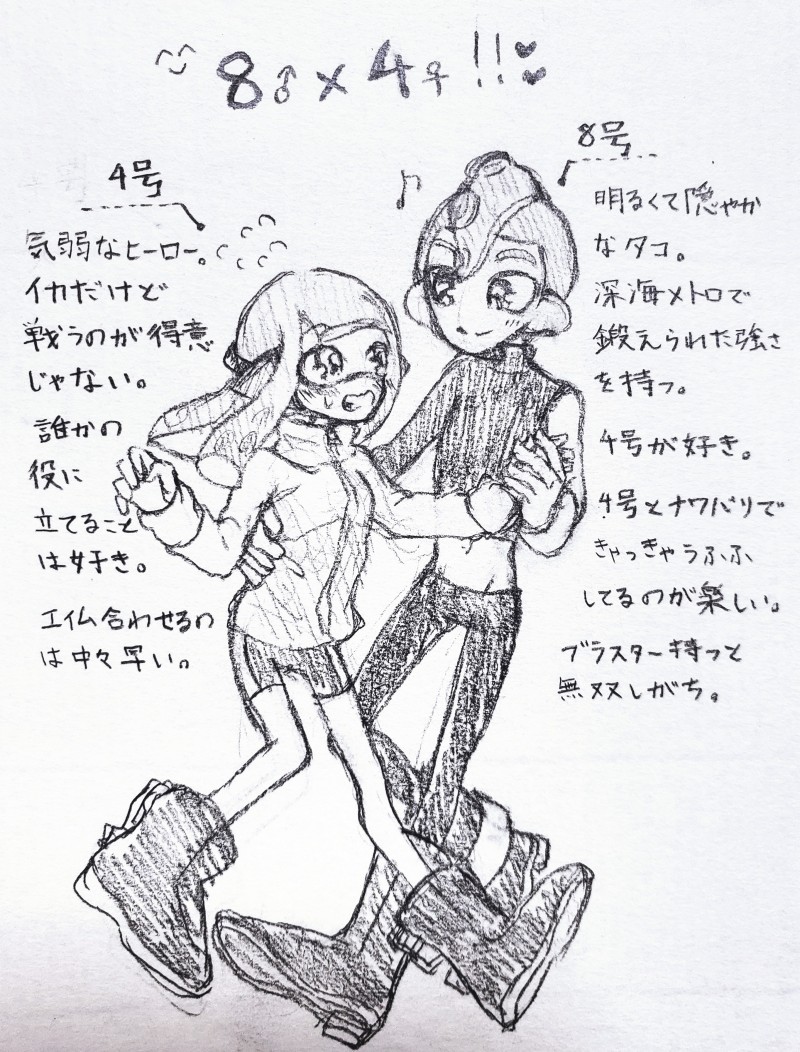 8♂×4♀!!♥♥
4号
気弱なヒーロー。
イカだけど
戦うのが得意
じゃない。
誰かの
役に
立てること
は好き。
エイム合わせるの
は中々早い。
8号
明るくて隠やか
なタコ。
深海メトロで
鍛えられた強さ
を持つ。
4号が好き。
4号とナワバリで
きゃっきゃうふふ
してるのが楽しい。
ブラスター持つと
無双しがち。